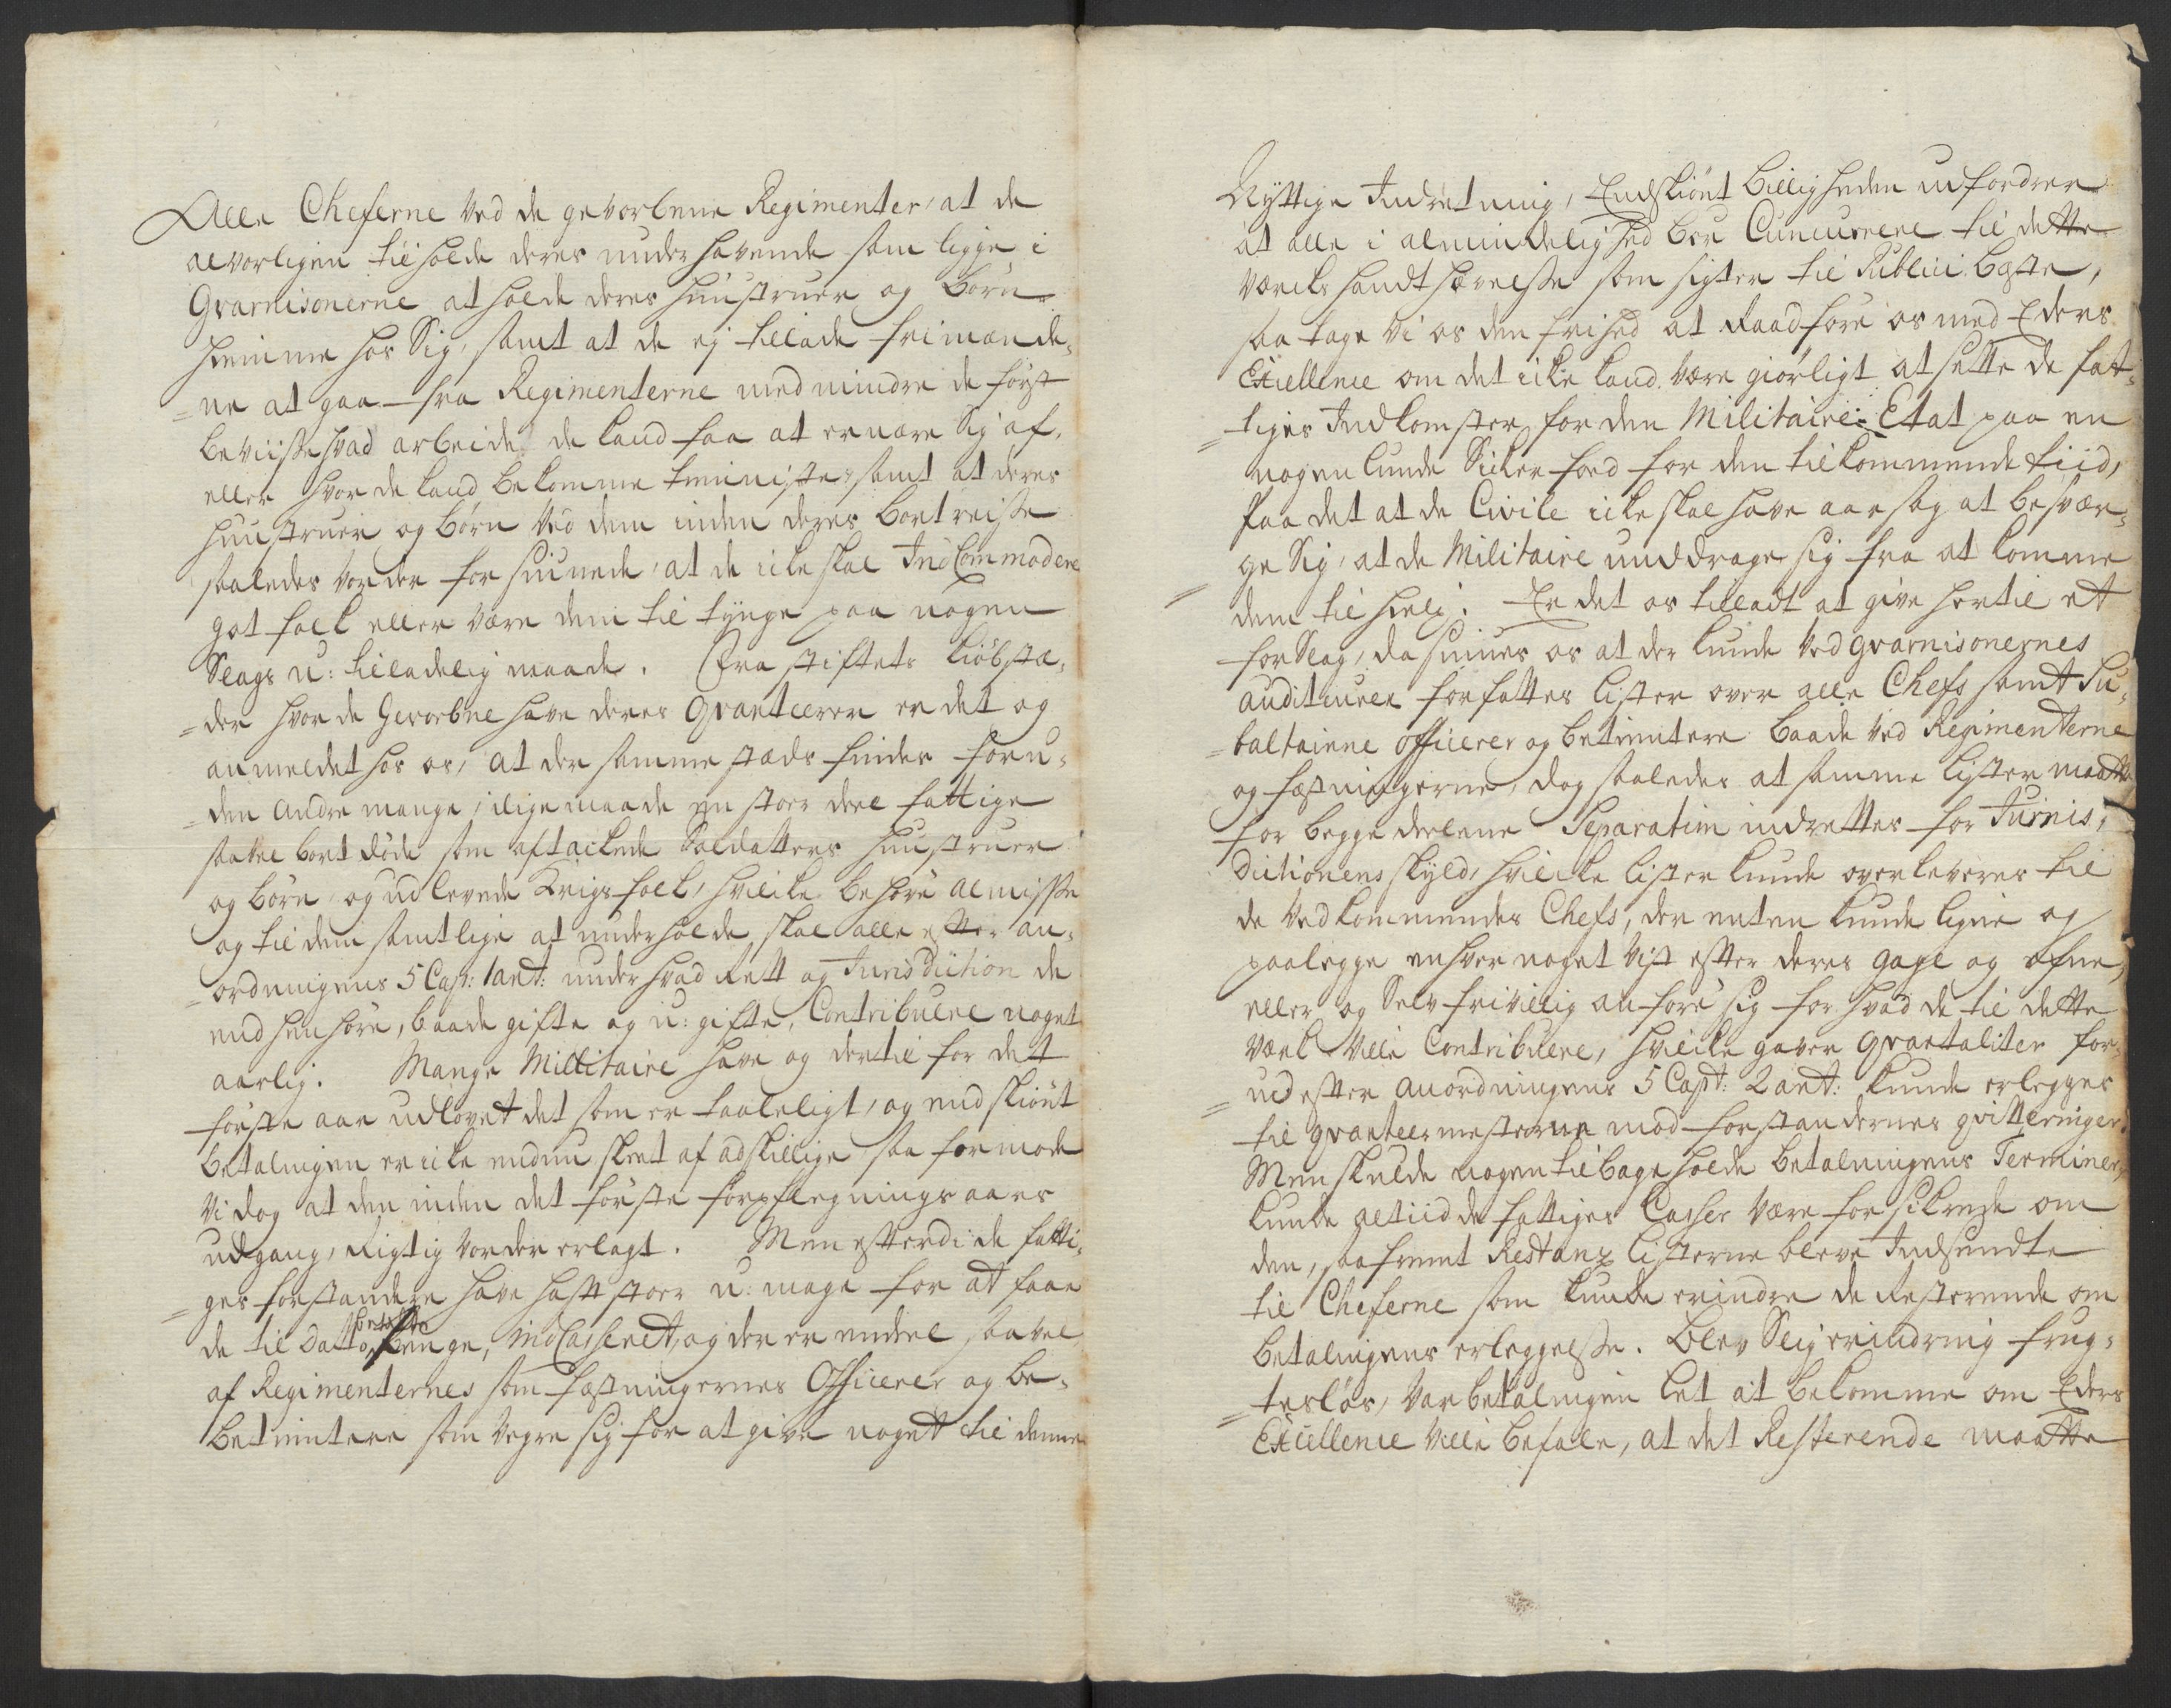 Alle Cheferne ved de gevorbene Regimenter, at de
alvorligen tilholde deres underhavende som ligge i
Gvarnisonerne at holde deres huustruer og Børn
hiemme hos Sig, samt at de ej tillade frimænde¸
=ne at gaa fra Regimenterne med mindre de først
beviisse hvad arbeide de kand faa at ernære Sig af,
eller hvor de kand bekomme tienniste, samt at deres
huustruer og børn ved dem inden deres bortreisse
saaledes vorder forsiunede, at de icke skal IndCommodere
got folk eller være dem til tynge paa nogen
Slags u: tilladelig maade. Fra stiftets kiøbstæ¸
=der hvor de Gevorbne have deres Qvarteerer er det og
anmeldet hos os, at der sammestæds findes foru¸
=den andre mange, i lige maade en stoer deel fattige
saavel bortdøde som aftackede Soldatters huustruer
og børn, og udlevede Krigsfolk, hvilcke behøre almisse
og til dem samtlige at underholde skal alle efter an¸
=ordningens 5 Cap: 1 art: under hvad Rett og Jurisdiction de
end henhøre, baade gifte og u: gifte, Contribuere noget
aarlig. Mange Millitaire have og dertil for dett
første aar udlovet det som er taaleligt, og endskiønt
betalningen er icke endnu skeet af adskillige saa formode
vi dog at den inden det første forpflegnings aars
udgang, Rigtig vorder erlagt. Men efterdi de fatti¸
=ges forstandere have haft stoer u: mage for at faae
de til Datto penge, indCasseret, og der er endeel saavel
af Regimenternes som fæstningernes Officerer og be¸
betientere som vegre sig for at give noget til denne
Nyttige Indretning, Endskiønt billigheden udfordrer
at alle i almindelighed bør Cuncurrere til dette
værcks handthævelse som sigter til Publici bæste,
saa tage vi os den frihed at Raadføre os med Eders
Excellence om det icke kand være giørligt at sætte de fat¸
=tiges Indkomster for den Militaire Etat paa en
nogenlunde Sicker foed for den tilkommende tiid,
Paa det at de Civile icke skal have aarsag at besvær¸
ge Sig, at de Militaire unddrager sig fra at komme
=dem til hielp. Er det os tilladt at give hertil et
forslag, da siunes os at der kunde ved gvarnisonernes
auditeurer forfattes lister over alle Chefs samt Su¸
=baltairne officerer og betientere baade ved Regimenterne
og fæstningerne, dog saaledes at samme lister maatte
for begge deelene Separatim indrettes for Jurris¸
dictionens skyld, hvilcke lister kunde overleveres til
de vedkommendes Chefs, der enten kunde ligne og
paalegge enhver noget vist efter deres gage og æfne,
eller og Selv frivillig anføre sig for hvad de til dette
værk ville Contribuere, hvilcke gaver qvartaliter for¸
=ud efter anordningens 5 Capt: 2 art: kunde erlegges
til qvarteermesterne mod forstandernes qvitteringer.
Men skulde nogen tilbageholde betalningens Terminer,
kunde altiid de fattiges Casser være forsikrede om
den, saafremt Restanz listerne bleve Indsendte
til Cheferne som kunde erindre de Resterende om
betalningens erleggelse. Blev Slig erindring frug¸
=tesløs, var betalningen let at bekomme om Eders
Excellence ville befale, at det Resterende maatte